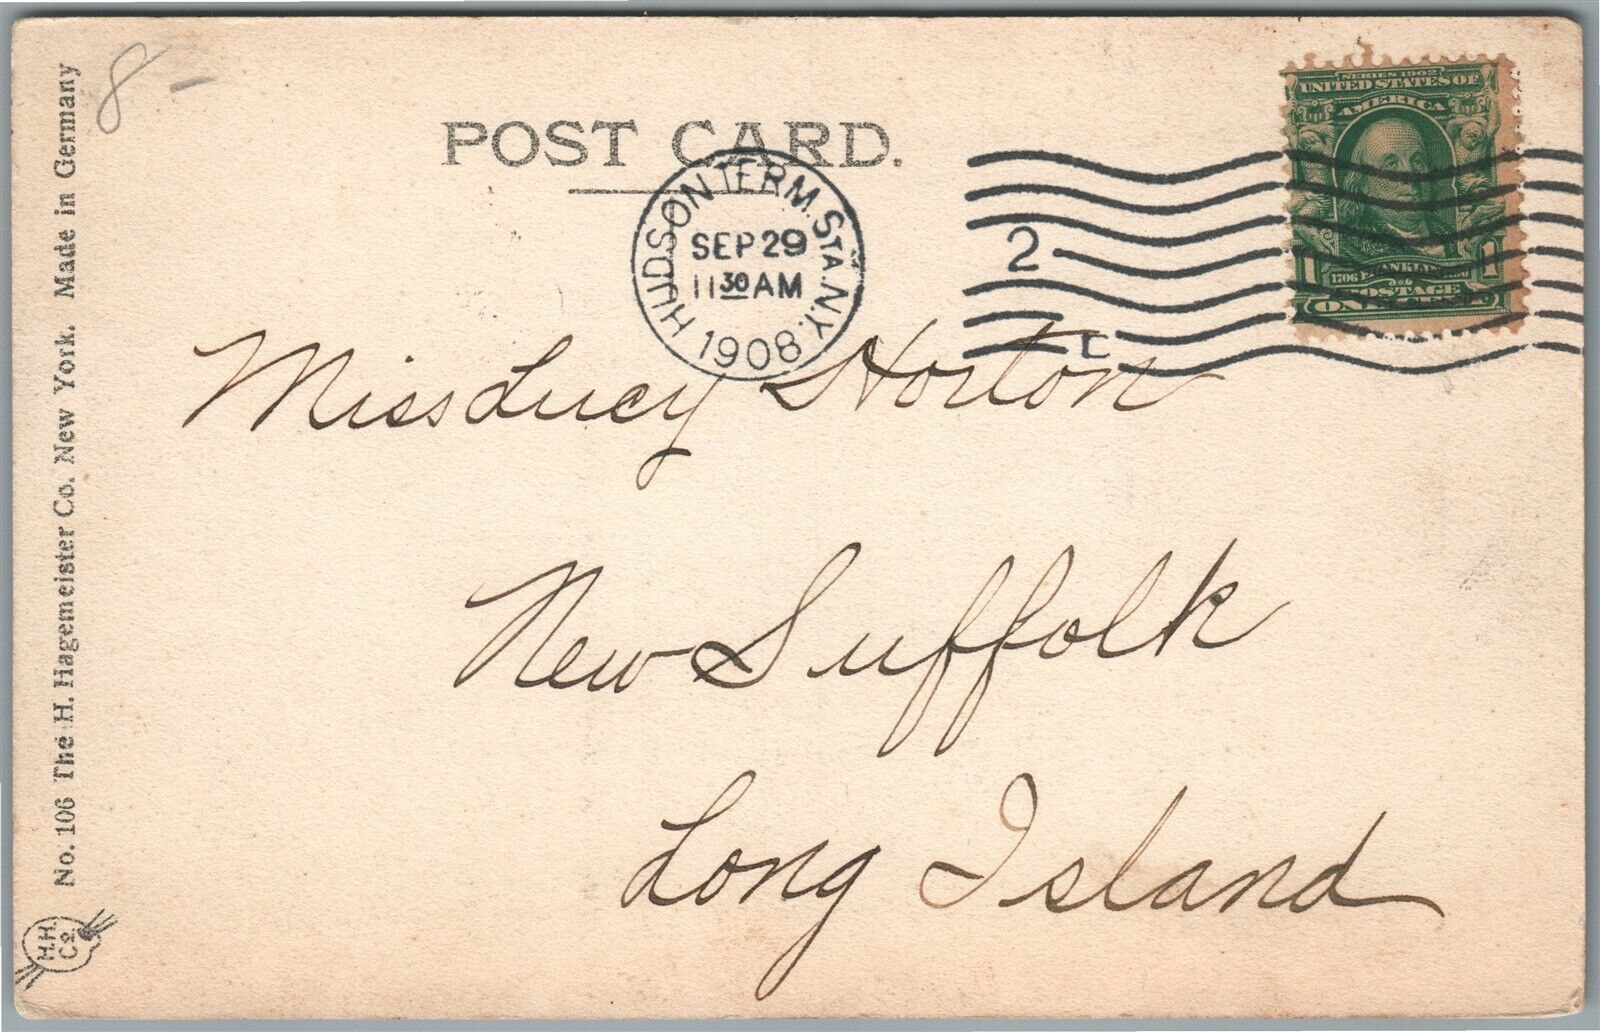 8 -
POST CARD.
HUDSON TERM. STA. N.Y.
SEP 29
11 30 AM
1908
2
C
SERIES 1902
UNITED STATES OF
AMERICA
1706 FRANKLIN 1790
1 1
POSTAGE
ONE CENT
Miss Lucy Horton
New Suffolk
Long Island
No. 106 The H. Hagemeister Co. New York. Made in Germany
H.H.
Co.